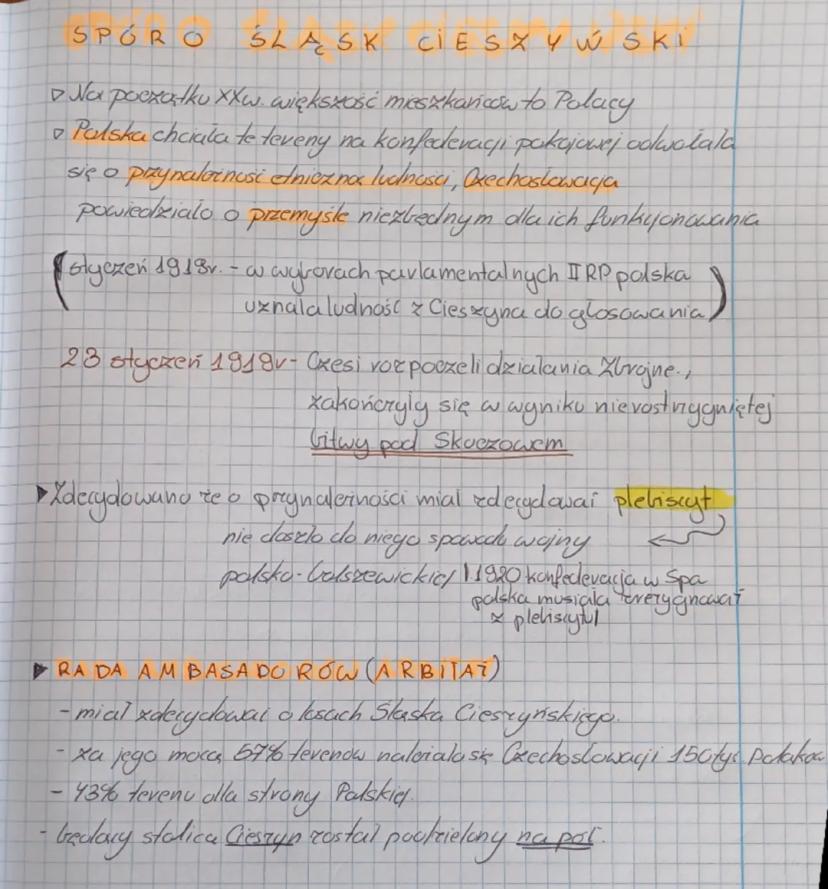 SPÓR O ŚLĄSK CIESZYŃSKI
▷ Na początku XXw. większość mieszkańców to Polacy
▷ Polska chciała te tereny na konfederacji pokojowej odwołała
się o przynależnosi etniczna ludnosci, Czechosłowacja
powiedziało o przemyśle niezbędnym dla ich funkcjonowania
(styczeń 1919r. - w wyborach parlamentalnych II RP polska
uznała ludność z Cieszyna do głosowania)
23 styczeń 1919r - Czesi rozpoczeli działania Zbrojne.,
zakończyły się w wyniku nierostrzygniętej
bitwy pod Skoczowem
▶ Zdecydowano że o przynależności miał zdecydować plebiscyt
nie doszło do niego spowodu wojny
polsko-bolszewickiej | 1920 konfederacja w Spa
polska musiała zrezygnować
z plebiscytu|
▶ RADA AMBASADORÓW (ARBITAŻ)
- miał zdecydować o losach Śląska Cieszyńskiego.
- za jego mocą 57% terenów należało sk Czechosłowacji 150tyś Polaków
- 43% terenu dla strony Polskiej.
- będący stolica Cieszyn został podzielony na pół.